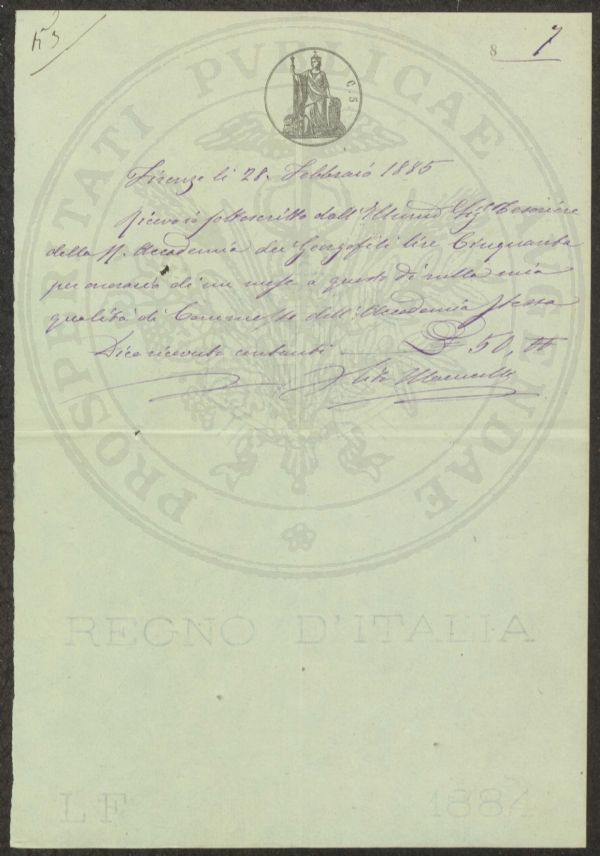 8 7
C. 5
PROSPERITATI PVBLICAE AVGENDAE
Firenze li 28. Febbraio 1885
Ricevo io sottoscritto dall' Illmo Sigr Tesoriere
della R. Accademia dei Georgofili lire Cinquanta
per onorario di un mese a questo dì nella mia
qualità di Commesso dell' Accademia stessa
Dico ricevute contanti £ 50,
REGNO D'ITALIA
LF 1884